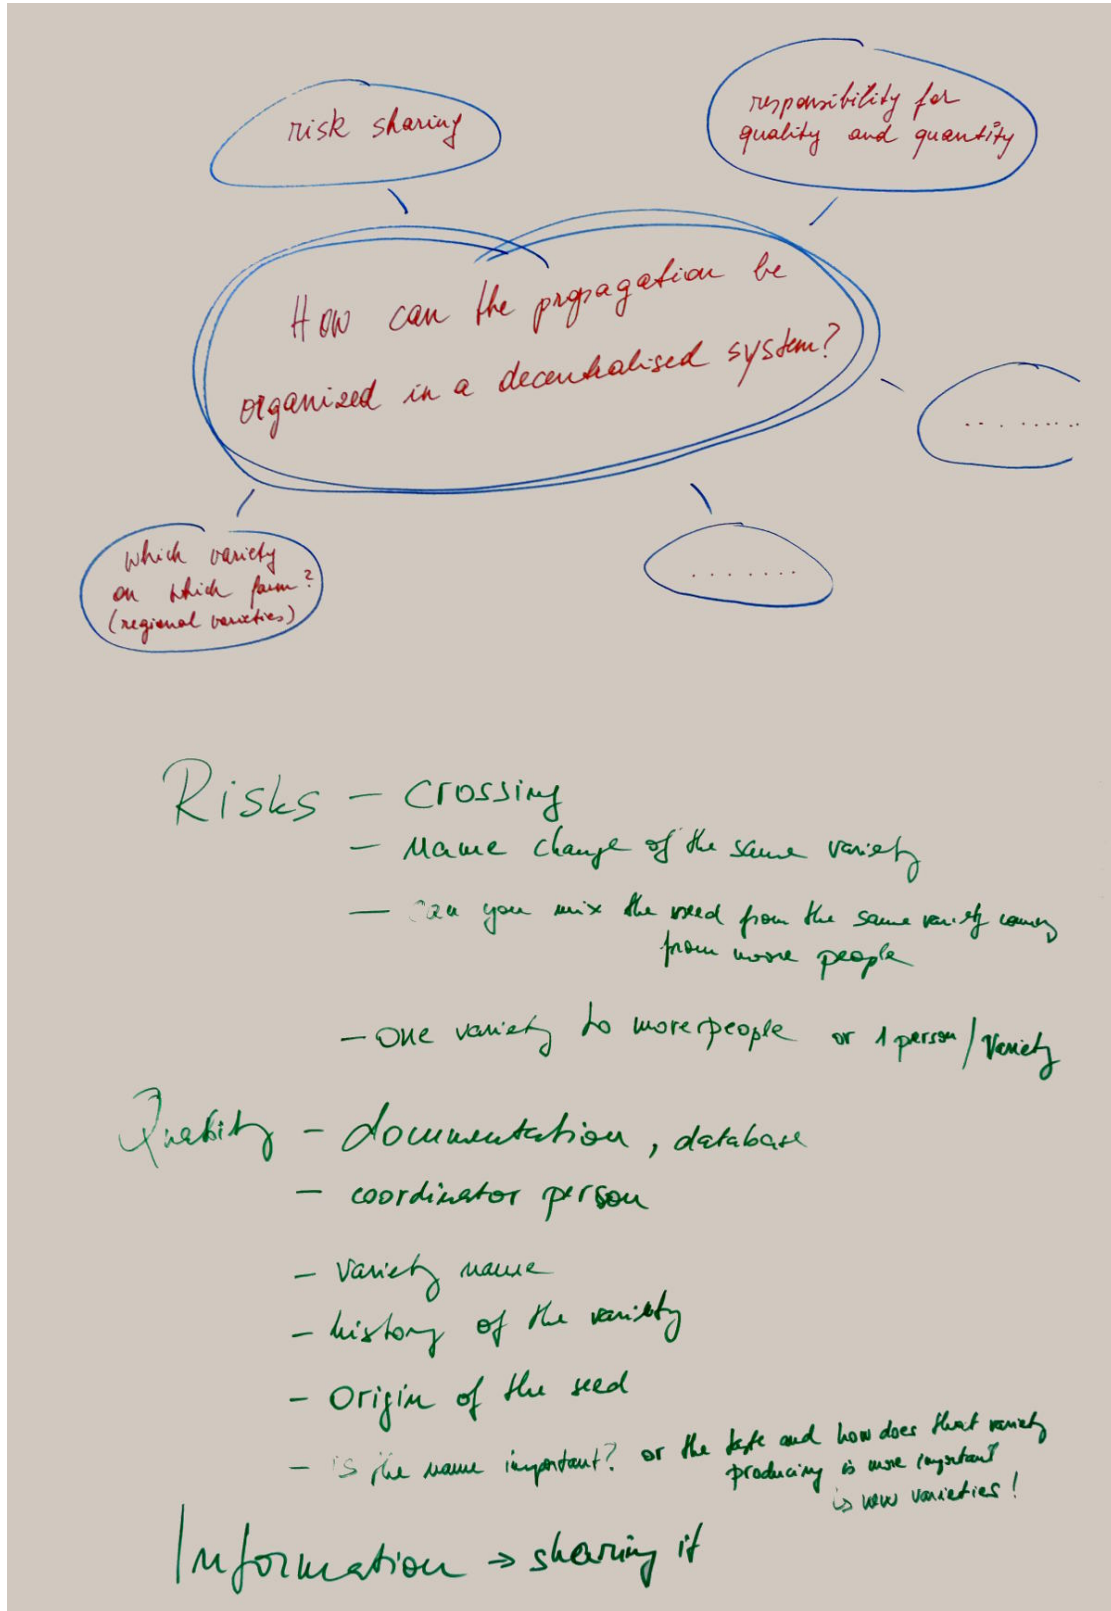 risk sharing
responsibility for
quality and quantity
How can the propagation be
organized in a decentralised system?
.. . .... ..
which variety
on which farm?
(regional varieties)
. . . . . . .
Risks - crossing
- Name change of the same variety
- can you mix the seed from the same variety coming
from more people
- one variety to more people or 1 person / variety
Quality - documentation, database
- coordinator person
- variety name
- history of the variety
- Origin of the seed
- is the name important? or the taste and how does that variety
producing is more important
is new varieties!
Information → sharing it